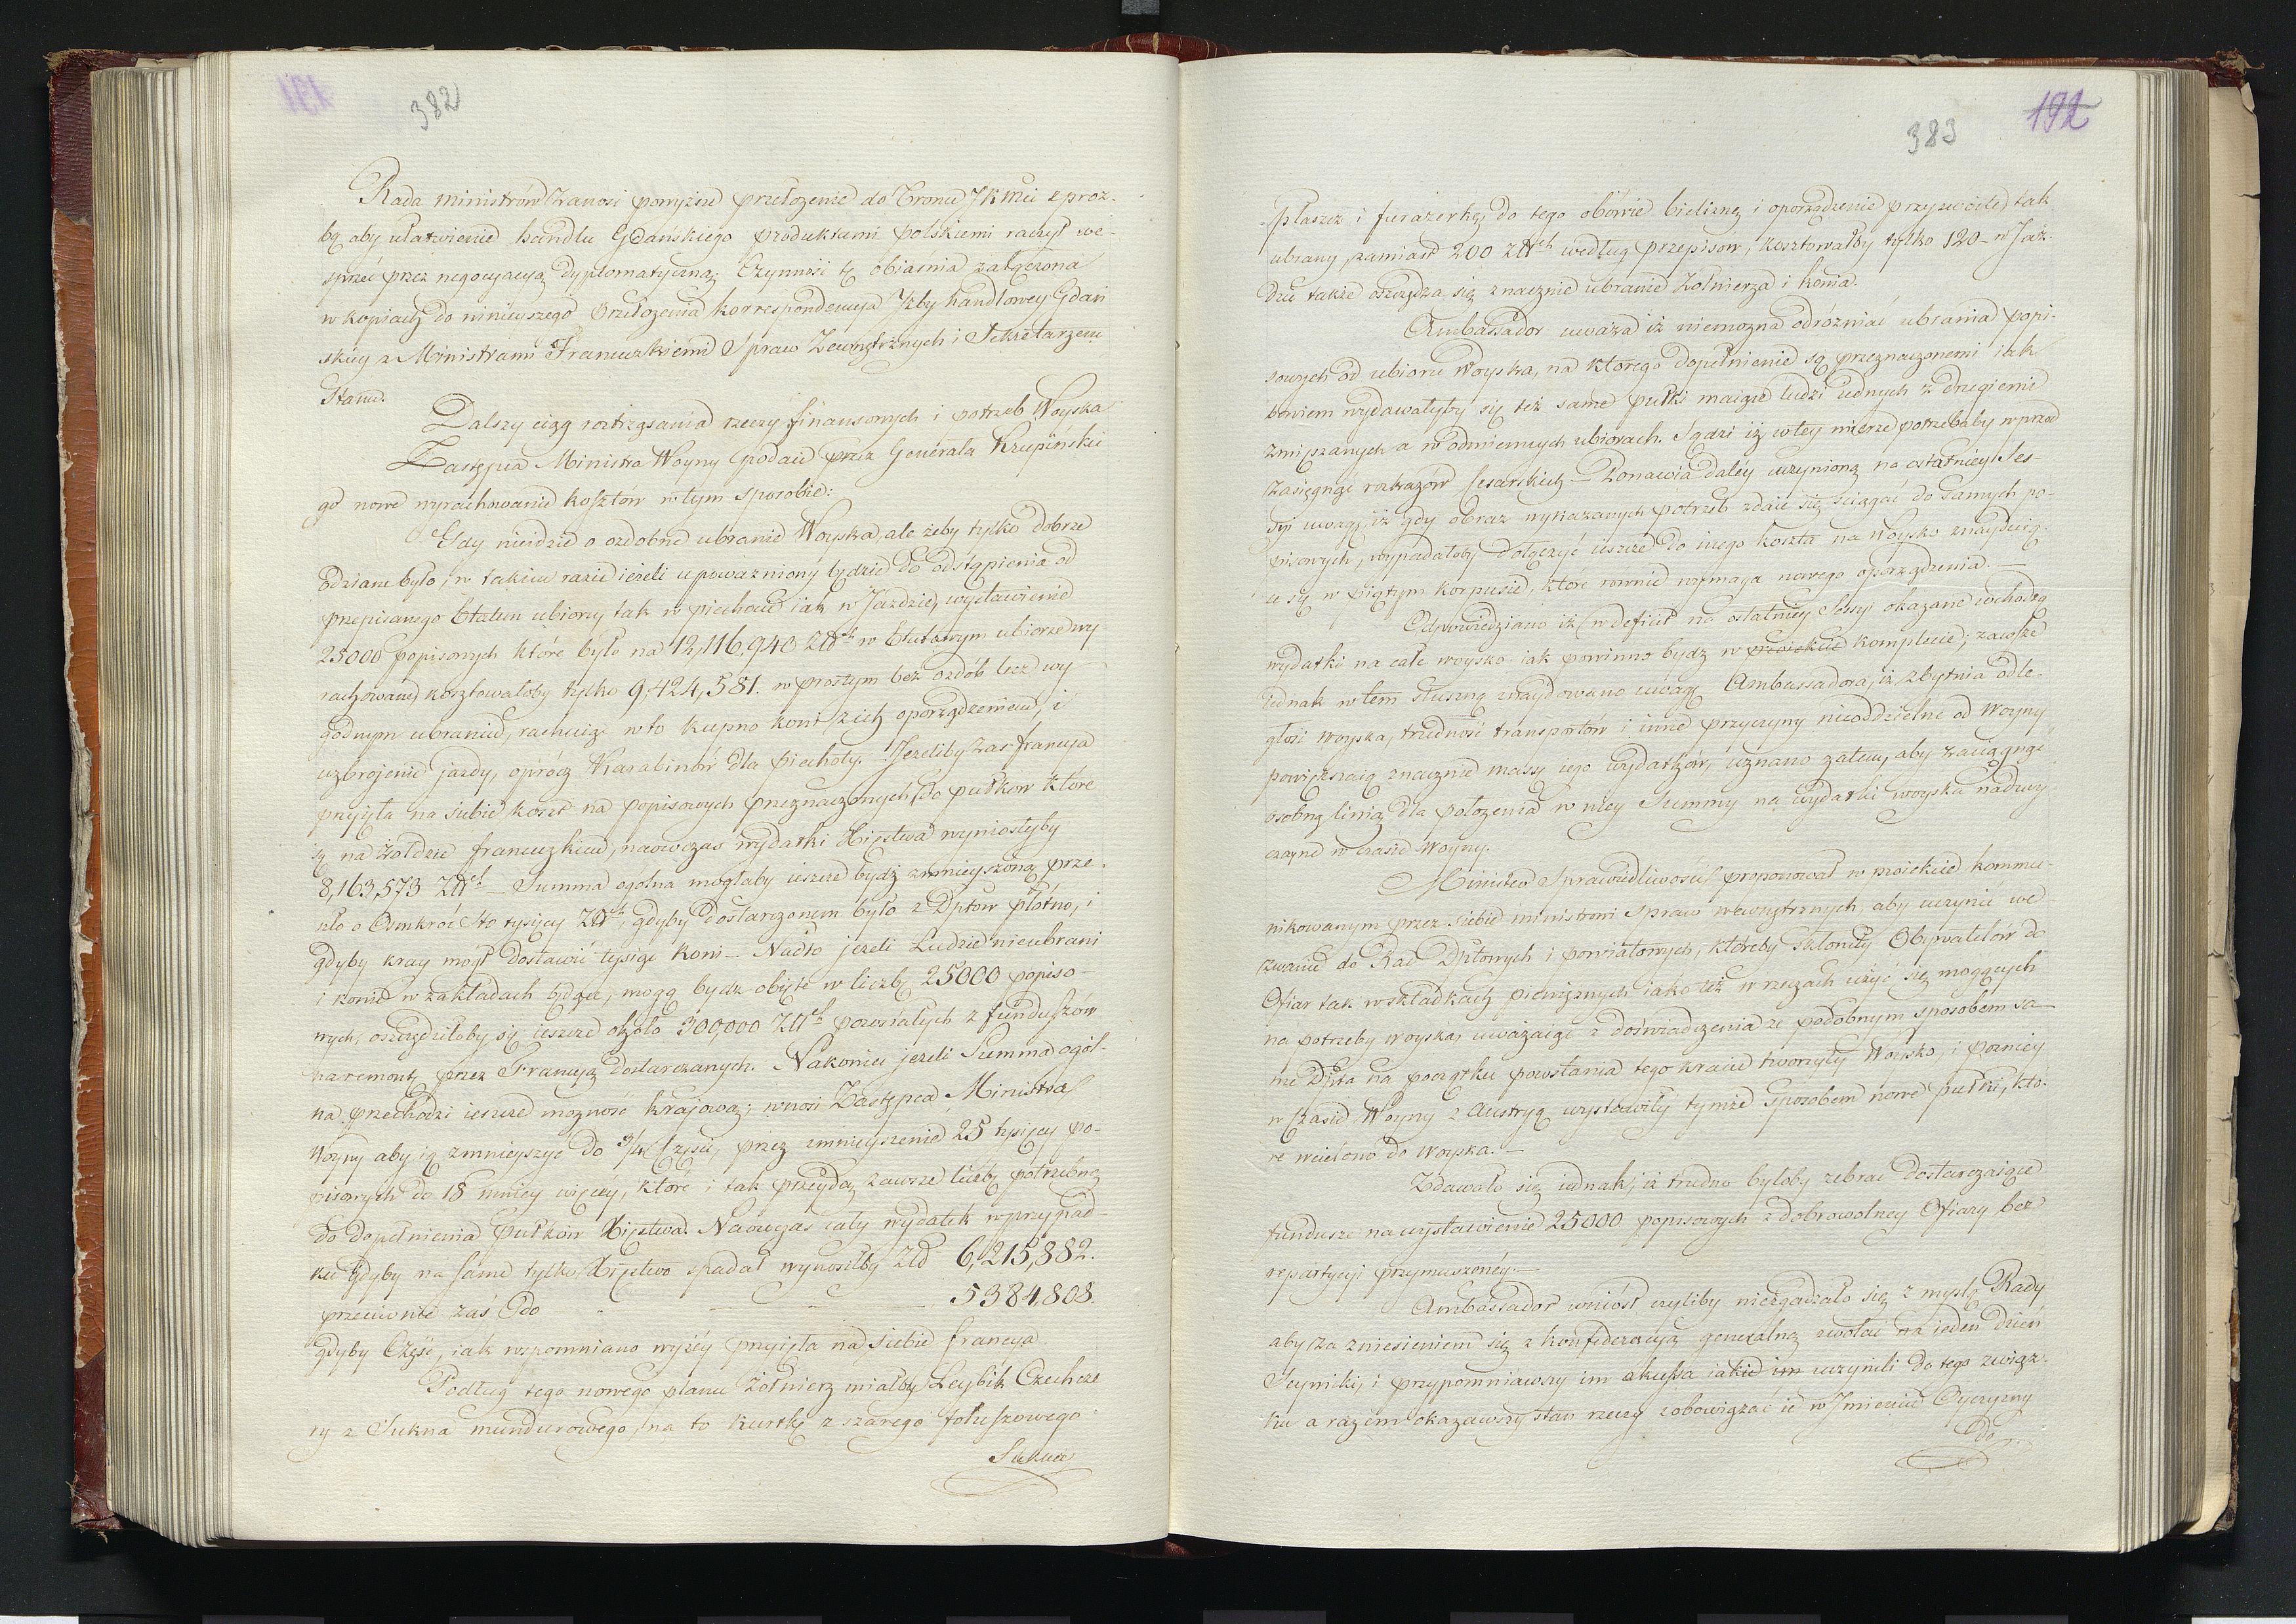 382
Rada Ministrów Zanosi powyższe przełożenie do Tronu JKMci z proź-
bą aby ułatwienie handlu Gdańskiego produktami polskiemi raczył we-
sprzeć przez negocyacyą dyplomatyczną; Czynność tę obiaśnia załączona
w kopiach do ninieyszego Przełożenia korrespondencya Izby handlowey Gdań
skiey z Ministrami Francuzkiemi Spraw Zewnętrznych i Sekretarzem
Stanu.
Dalszy ciąg roztrząsania rzeczy finansowych i potrzeb Woyska
Zastępca Ministra Woyny podaie przez Generała Krupińskie
go nowe wyrachowanie kosztów w tym sposobie:
Gdy nieidzie o ozdobne ubranie Woyska, ale żeby tylko dobrze
odziane było, w takim razie ieżeli upoważniony będzie do odstąpienia od
przepisanego Etatem ubioru tak w piechocie iak w Jeździe, wystawienie
25000 popisowych które było na 12,116,940 Złch w Etatowym ubiorze wy
rachowane, kosztowałoby tylko 9,424,581. w prostym bez ozdób lecz wy
godnym ubraniu, rachuiąc w to kupno koni z ich oporządzeniem, i
uzbrojenie jazdy, oprócz Karabinów dla piechoty. Jeżeliby zas francya
przyięła na siebie koszt na popisowych przeznaczonych do pułkow które
są na żołdzie francuzkim, naówczas wydatki Xięstwa wyniosłyby
8,163,573 Złch – Summa ogolna mogłaby ieszcze bydź zmnieyszoną prze-
szło o Ośmkroć Sto tysięcy Złch, gdyby dostarczonem było z Dptow płótno, i
gdyby kray mógł dostawić tysiąc koni – Nadto jeżeli Ludzie nieubrani
i konie w zakładach będące, mogą bydz obięte w liczbę 25000 popiso-
wych, oszczędziłoby się ieszcze około 300,000 Złch pozostałych z funduszów
na remontę przez Francyą dostarczanych. Nakoniec jeżeli Summa ogól-
na przechodzi ieszcze możność krajową; wnosi Zastępca Ministra
Woyny aby ią zmnieyszyć do 3/4 Części, przez zmnieyszenie 25 tysięcy po-
pisowych do 18 mniey więcéy, które i tak przeydą zawsze liczbę potrzebną
do dopełnienia Pułków Xięstwa. Naówczas cały wydatek w przypad-
ku gdyby na same tylko Xięstwo spadał wynosiłby Złd 6,215,882.
przeciwnie zaś do – – – 5384,808.
gdyby Część, iak wspomniano wyżéy przyięła na siebie francya.
Podług tego nowego planu Żołnierz miałby Leybik Czechcze
ry z Sukna mundurowego, na to kurtkę z szarego foluszowego
Sukna
192
383
Płaszcz i furażerkę, do tego obówie bieliznę i oporządzenie przyzwoite; tak
ubrany, zamiast 200 Złch według przepisow, kosztowałby tylko 120 – w Jaz-
dzie także oszczędza się znacznie ubranie Żołnierza i konia.
Ambassador uważa iż niemożna odróżniać ubrania popi-
sowych od ubioru Woyska, na którego dopełnienie są przeznaczonemi iak
bowiem wydawałyby się też same pułki maiące ludzi iednych z drugiemi
zmięszanych a w odmiennych ubiorach. Sądzi iż w tey mierze potrzebaby wprzod
zasięgnąć rozkazów Cesarskich – Ponawia daley uczynioną na ostatniey Ses-
syi uwagę, iż gdy obraz wykazanych potrzeb zdaie się ściągać do samych po-
pisowych, wypadałoby dołączyć ieszcze do niego koszta na Woysko znayduią-
ce się w piątym korpusie, które rownie wymaga nowego oporządzenia. –
Odpowiedziano iż w deficit na ostatniey Sessyi okazane wchodzą
wydatki na całe woysko iak powinno bydz w proiekcie komplecie; zawsze
iednak w tem słuszną znaydowano uwagę Ambassadora, iż zbytnia odle-
głość woyska, trudność transportów i inne przyczyny nieoddzielne od Woyny
powiększaią znacznie massę iego wydatków, uznano zatem, aby zaciągnąć
osobną linią dla położenia w niey Summy na wydatki woyska nadzwy
czayne w czasie Woyny.
Minister Sprawiedliwości proponował w proiekcie kommu-
nikowanym przez siebie ministrowi Spraw wewnętrznych, aby uczynić we-
zwanie do Rad Dptowych i powiatowych, któreby skłoniły Obywatelów do
Ofiar tak w składkach pieniężnych iako też w rzeczach użyć się mogących
na potrzeby woyska, uważaiąc z doświadczenia że podobnym sposobem sa-
me Dpta na początku powstania tego kraiu tworzyły Woysko, i pozniey
w Czasie Woyny z Austryą wystawiły tymże sposobem nowe pułki, któ-
re wcielono do Woyska. –
Zdawało się iednak, iż trudno byłoby zebrać dostarczaiące
fundusze na wystawienie 25000 popisowych z dobrowolney Ofiary bez
repartycyi przymuszonéy. –
Ambassador wniosł czyliby niezgadzało się z myślą Rady
aby za zniesieniem się z konfederacyą generalną zwołać na ieden Dzień
Seymiki, i przypomniawszy im akcessa iakie im uczynili do tego związ-
ku a razem okazawszy stan rzeczy zobowiązać ie w Imieniu Oyczyzny
do